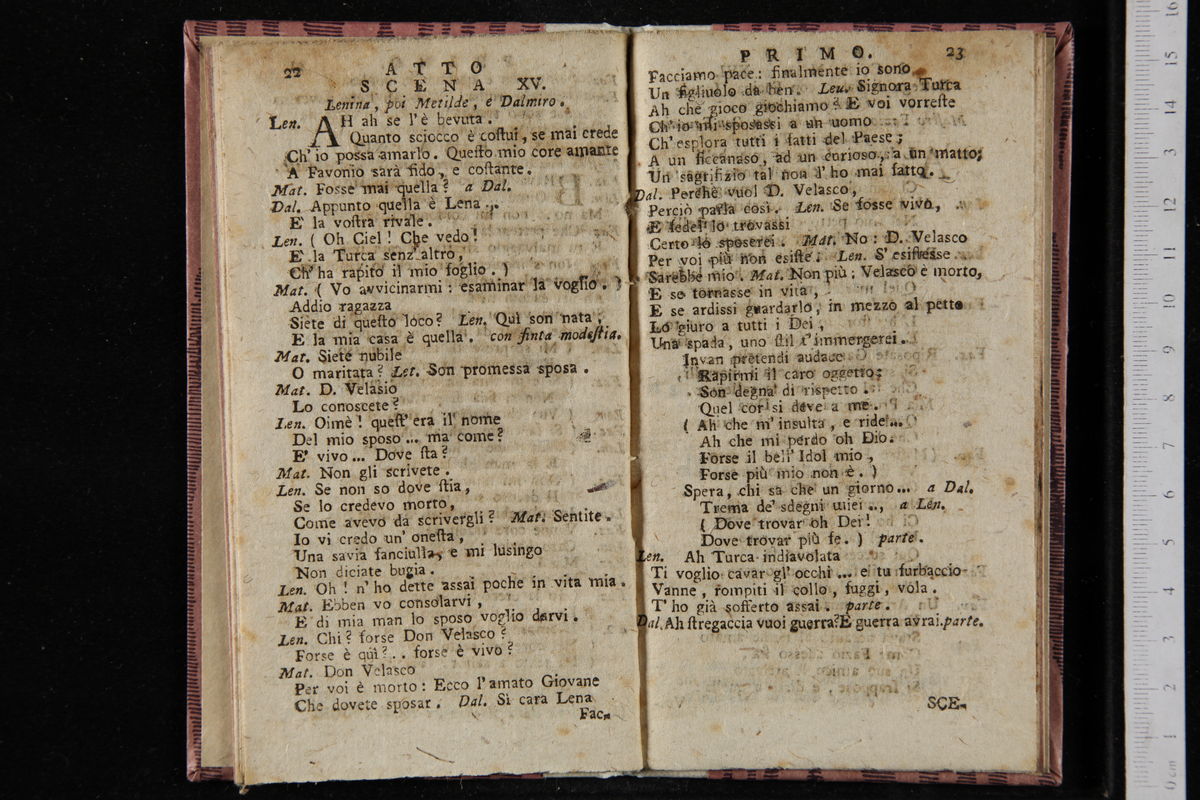 22 ATTO
SCENA XV.
Lenina, poi Metilde, e Dalmiro.
Len. AH ah se l'è bevuta.
Quanto sciocco è costui, se mai crede
Ch'io possa amarlo. Questo mio core amante
A Favonio sarà fido, e costante.
Mat. Fosse mai quella? a Dal.
Dal. Appunto quella è Lena..
E' la vostra rivale.
Len. ( Oh Ciel! Che vedo!
E' la Turca senz'altro,
Ch'ha rapito il mio foglio. )
Mat. ( Vo avvicinarmi: esaminar la voglio. )
Addio ragazza
Siete di questo loco? Len. Quì son nata,
E la mia casa è quella. con finta modestia.
Mat. Siete nubile
O maritata? Let. Son promessa sposa.
Mat. D. Velasio
Lo conoscete?
Len. Oimè! quest'era il nome
Del mio sposo... ma come?
E' vivo... Dove sta?
Mat. Non gli scrivete.
Len. Se non so dove stia,
Se lo credevo morto,
Come avevo da scrivergli? Mat. Sentite.
Io vi credo un'onesta,
Una savia fanciulla, e mi lusingo
Non diciate bugia.
Len. Oh! n'ho dette assai poche in vita mia.
Mat. Ebben vo consolarvi,
E di mia man lo sposo voglio darvi.
Len. Chi? forse Don Velasco?
Forse è quì?.. forse è vivo?
Mat. Don Velasco
Per voi è morto: Ecco l'amato Giovane
Che dovete sposar. Dal. Si cara Lena
Fac-
PRIMO. 23
Facciamo pace: finalmente io sono
Un figliuolo da ben. Leu. Signora Turca
Ah che gioco giochiamo? E voi vorreste
Ch'io mi sposassi a un uomo
Ch'esplora tutti i fatti del Paese;
A un ficcanaso, ad un curioso, a un matto;
Un sagrifizio tal non l'ho mai fatto.
Dal. Perchè vuol D. Velasco,
Perciò parla così. Len. Se fosse vivo,
E fedel lo trovassi
Certo lo sposerei. Mat. No: D. Velasco
Per voi più non esiste. Len. S'esistesse
Sarebbe mio. Mat. Non più; Velasco è morto,
E se tornasse in vita,
E se ardissi guardarlo, in mezzo al petto
Lo giuro a tutti i Dei,
Una spada, uno stil t'immergerei.
Invan pretendi audace
Rapirmi il caro oggetto;
Son degna di rispetto.
Quel cor si deve a me.
( Ah che m'insulta, e ride...
Ah che mi perdo oh Dio.
Forse il bell'Idol mio,
Forse più mio non è. )
Spera, chi sa che un giorno... a Dal.
Trema de' sdegni miei.., a Len.
( Dove trovar oh Dei!
Dove trovar più fe. ) parte.
Len. Ah Turca indiavolata
Ti voglio cavar gl'occhi... e tu furbaccio
Vanne, rompiti il collo, fuggi, vola.
T'ho già sofferto assai. parte.
Dal. Ah stregaccia vuoi guerra? E guerra avrai. parte.
SCE-
16
15
14
13
12
11
10
9
8
7
6
5
4
3
2
1
0 cm